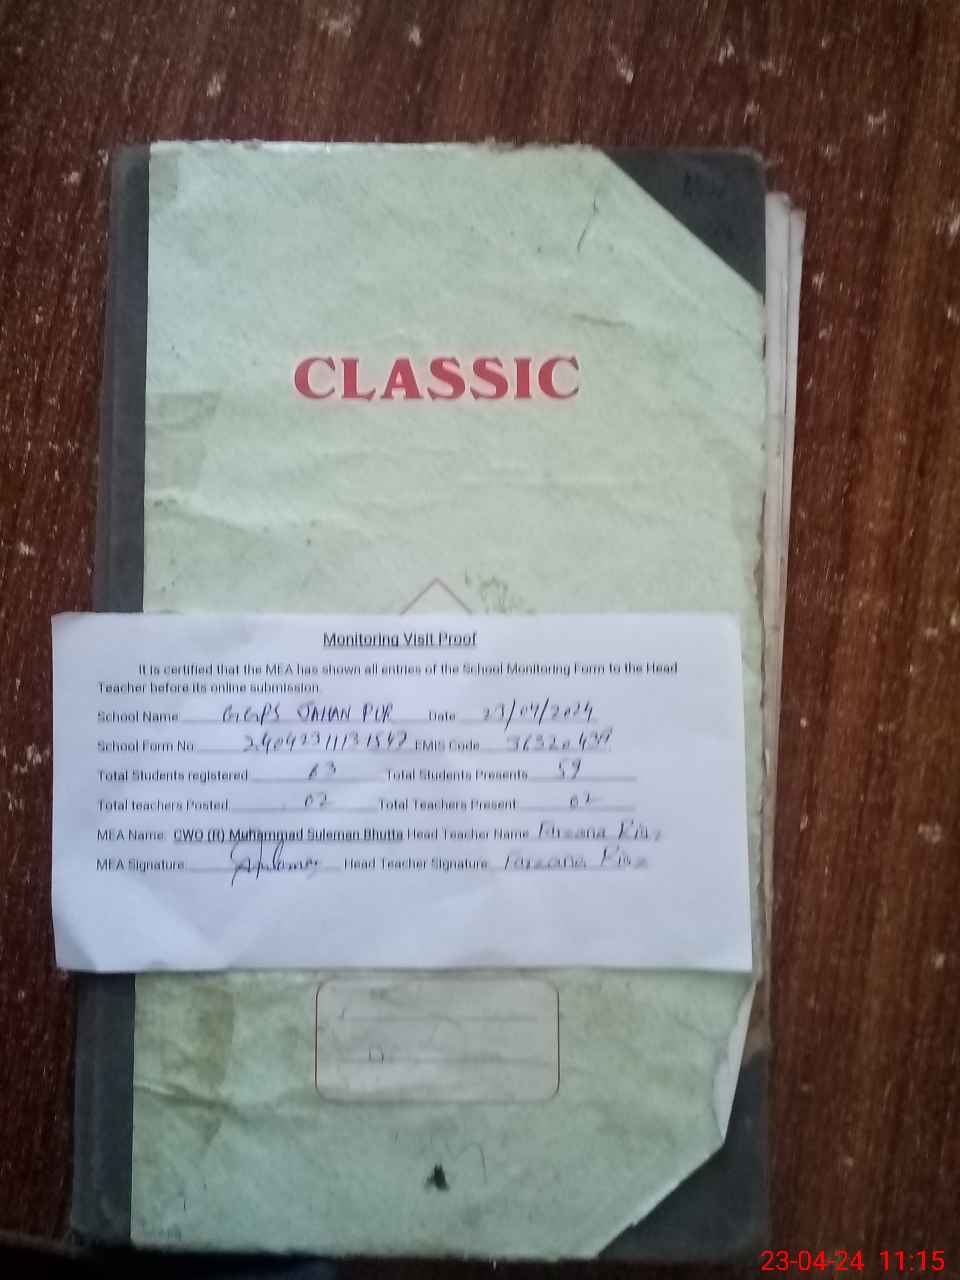 CLASSIC
Monitoring Visit Proof
It is certified that the MEA has shown all entries of the School Monitoring Form to the Head
Teacher before its online submission.
School Name GGPS JAHAN PUR Date 23/04/2024
School Form No 24042311131547 EMIS Code 36320439
Total Students registered 63 Total Students Presents 59
Total teachers Posted 02 Total Teachers Present 02
MEA Name: CWO (R) Muhammad Suleman Bhutta Head Teacher Name Farzana Riaz
MEA Signature Head Teacher Signature Farzana Riaz
23-04-24 11:15